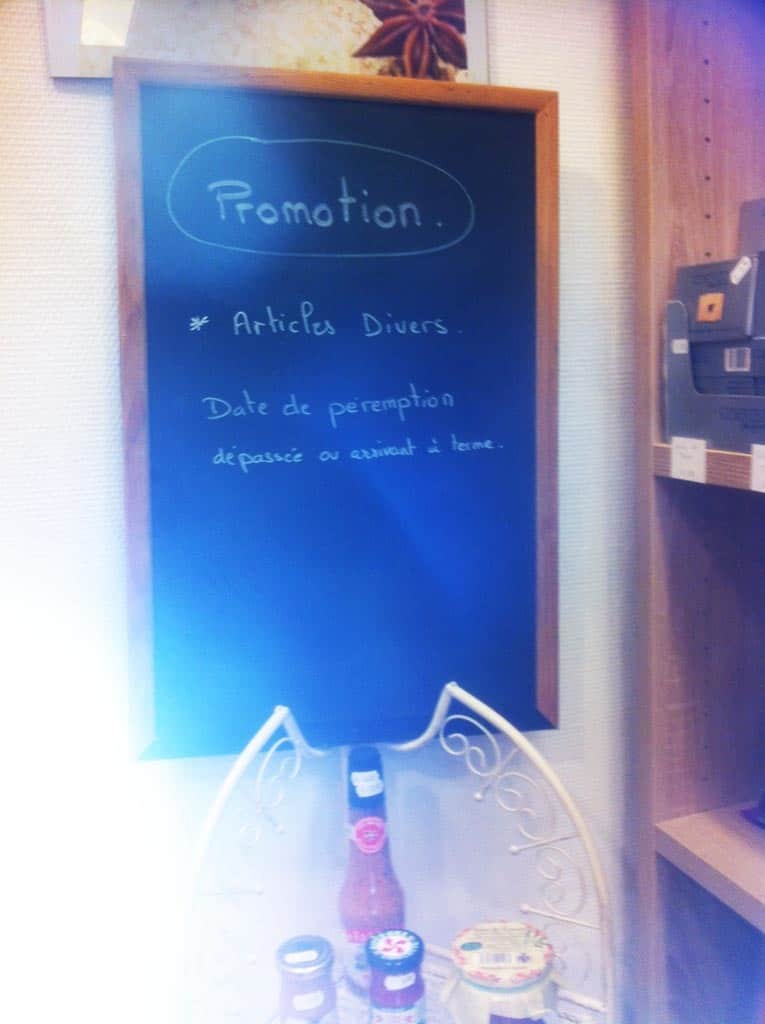 Promotion.
* Articles Divers.
Date de péremption
dépassée ou arrivant à terme.